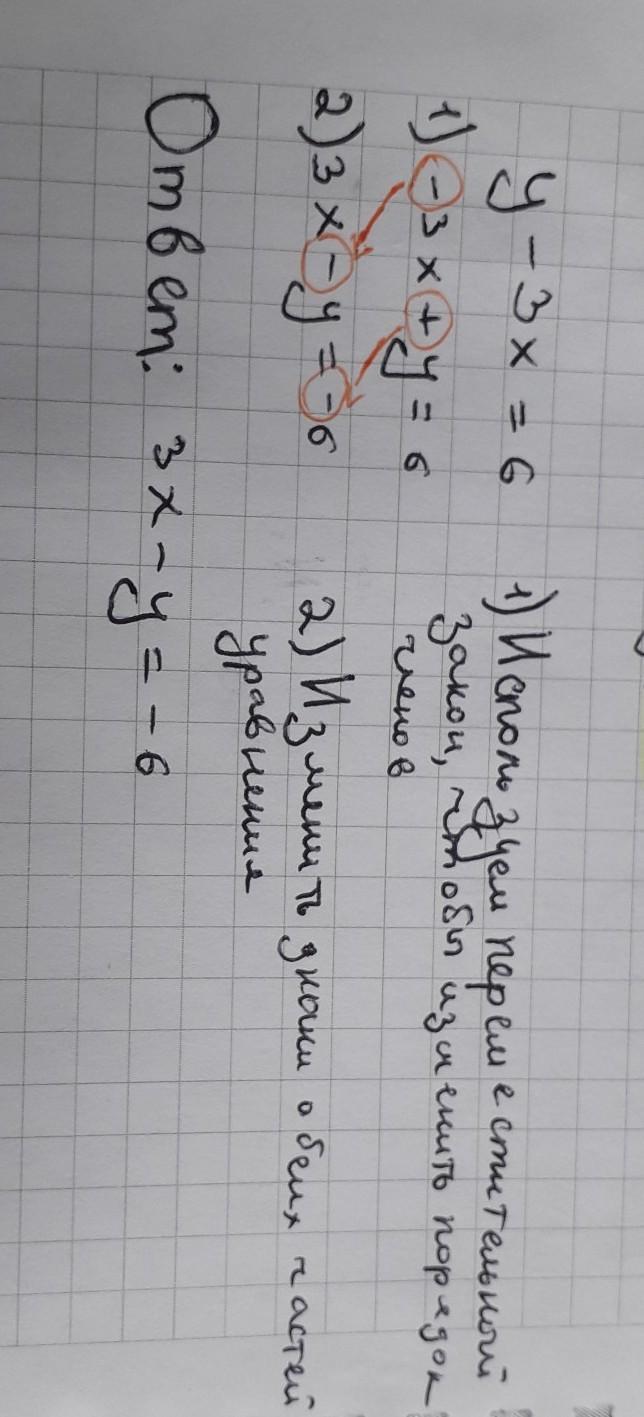 y - 3x = 6
1) -3x + y = 6
2) 3x - y = -6
1) Используем переместительный
закон, чтобы изменить порядок
членов
2) Изменить знаки обеих частей
уравнения
Ответ: 3x - y = -6